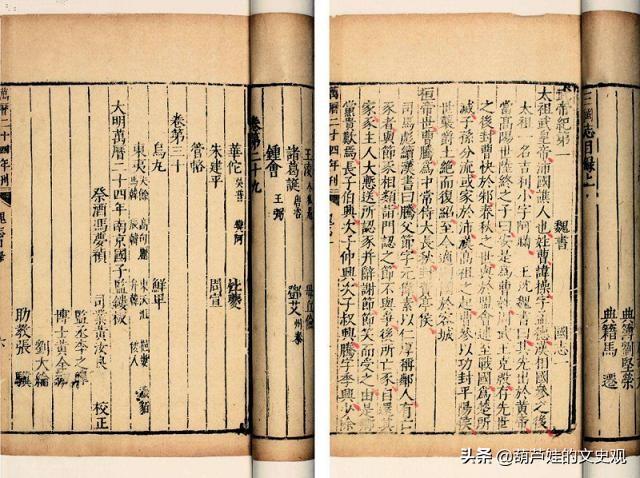 王淩
毋丘儉
諸葛誕 唐咨
鄧艾 州泰
鍾會 王弼
卷第二十九
華佗 吳普 樊阿
杜夔
朱建平
周宣
管輅
卷第三十
烏丸
鮮卑
東夷 夫餘 高句麗 東沃沮 挹婁 濊貊
馬韓 辰韓 弁韓 倭人
大明萬曆二十四年南京國子監鏤板
祭酒馮夢禎
司業黃汝良 校正
監丞李之
博士黃全初
劉大綸
助教張驥
萬曆二十四年刊
六
三國志目錄上
典簿劉堅
典籍馬遷
武帝紀第一 魏書 國志一
太祖武皇帝沛國譙人也姓曹諱操字孟德漢相國參之後
太祖一名吉利小字阿瞞 王沈魏書曰其先出於黃帝
當高陽世陸終之子曰安是為曹姓周武王克殷存先世
之後封曹俠於邾春秋之世與於盟會逮至戰國為楚所
滅子孫分流或家於沛漢高祖之起曹參以功封平陽侯
世襲爵土絕而復紹至今適嗣國於容城
桓帝世曹騰為中常侍大長秋封費亭侯
司馬彪續漢書曰騰父節字元偉素以仁厚稱鄰人有亡
豕者與節豕相類詣門認之節不與爭後所亡豕自還其
家豕主人大慙送所認豕并辭謝節節笑而受之由是鄉
黨貴歎焉長子伯興次子仲興次子叔興騰字季興少除
萬曆二十四年刊
头条 @葫芦娃的文史观